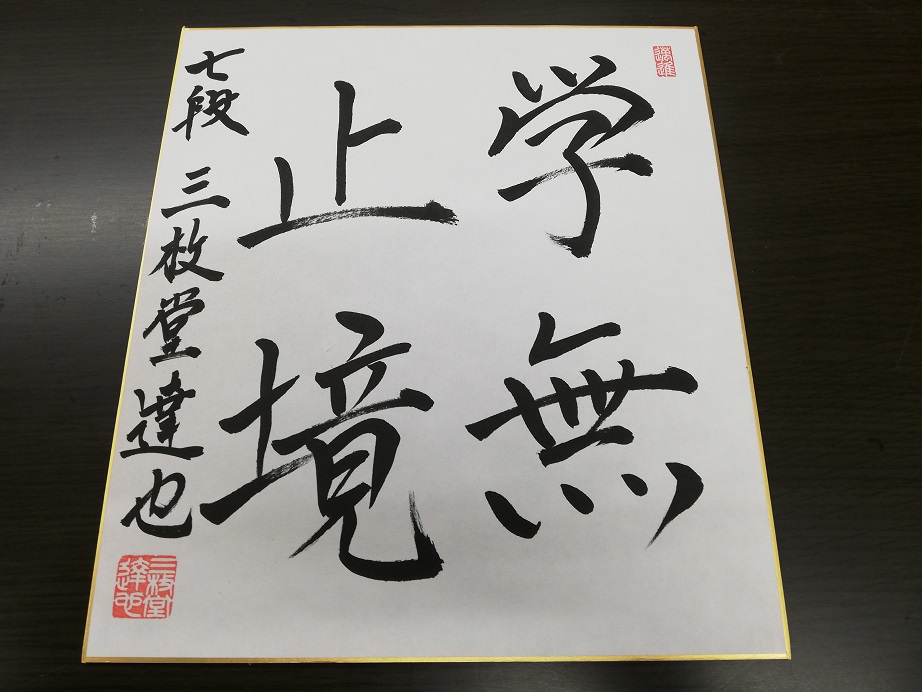 学無
止境
七段 三枚堂達也
邁進
三枚堂
達也